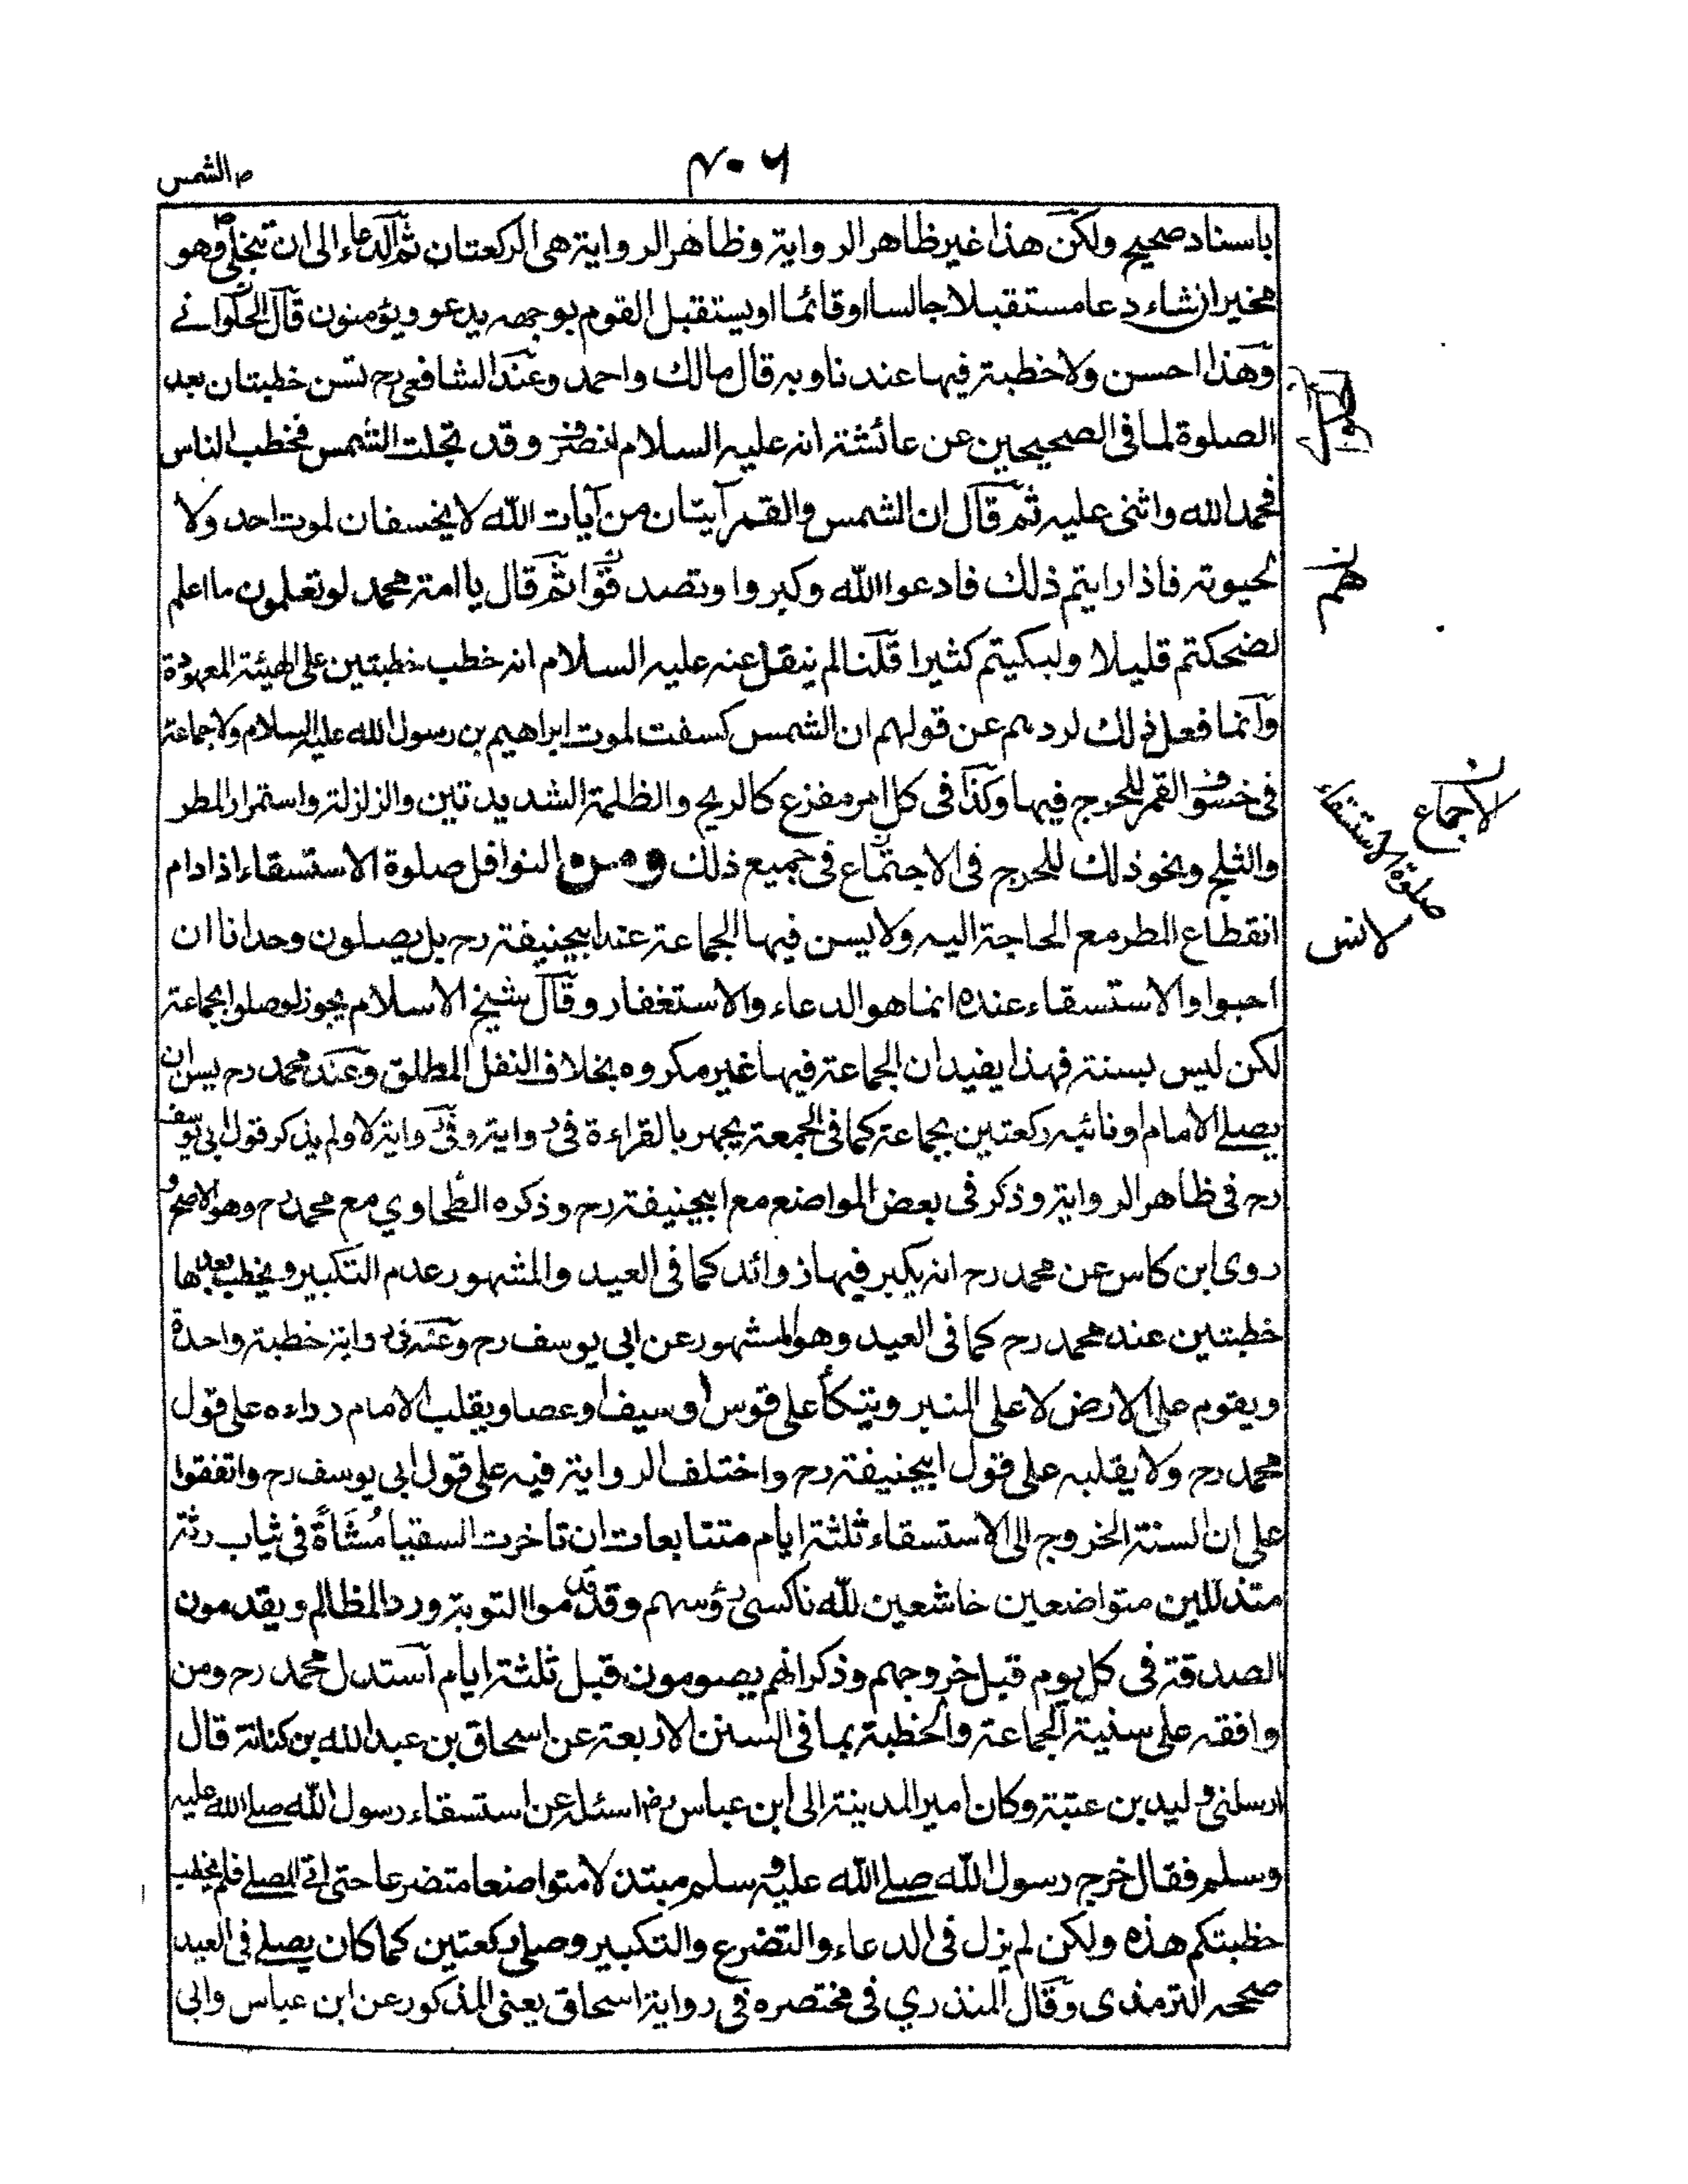 الشمس
٤٠٦
باسناد صحيح ولكن هذا غير ظاهر الرواية وظاهر الرواية هى الركعتان ثم الدعاء الى ان تنجلى وهو
مخير ان شاء دعا مستقبلا جالسا او قائما او يستقبل القوم بوجهه يدعو ويؤمنون قال الحلوانے
وهذا احسن ولا خطبة فيها عندنا وبه قال مالك واحمد وعند الشافعى رح تسن خطبتان بعد
الصلوة لما فى الصحيحين عن عائشة انه عليه السلام انصرف وقد تجلت الشمس فخطب الناس
فحمد الله واثنى عليه ثم قال ان الشمس والقمر آيتان من آيات الله لا يخسفان لموت احد ولا
لحيوته فاذا رايتم ذلك فادعوا الله وكبروا وتصدقوا ثم قال يا امة محمد لو تعلمون ما اعلم
لضحكتم قليلا ولبكيتم كثيرا قلنا لم ينقل عنه عليه السلام انه خطب خطبتين على الهيئة المعهودة
وانما فعل ذلك لردهم عن قولهم ان الشمس كسفت لموت ابراهيم بن رسول الله عليه السلام ولا جماعة
فى خسوف القمر للحرج فيها وكذا فى كل امر مفزع كالريح والظلمة الشديدتين والزلزلة واستمرار المطر
والثلج ونحو ذلك للحرج فى الاجتماع فى جميع ذلك ومن النوافل صلوة الاستسقاء اذا دام
انقطاع المطر مع الحاجة اليه ولا يسن فيها الجماعة عند ابيحنيفة رح بل يصلون وحدانا ان
احبوا والاستسقاء عنده انما هو الدعاء والاستغفار وقال شيخ الاسلام يجوز لو صلوا بجماعة
لكن ليس بسنة فهذا يفيد ان الجماعة فيها غير مكروه بخلاف النفل المطلق وعند محمد رح يسن ان
يصلے الامام او نائبه ركعتين بجماعة كما فى الجمعة يجهر بالقراءة فى رواية وفى رواية لا ولم يذكر قول ابى يوسف
رح فى ظاهر الرواية وذكر فى بعض المواضع مع ابيحنيفة رح وذكره الطحاوي مع محمد رح وهو الاصح و
روى ابن كاس عن محمد رح انه يكبر فيها زوائد كما فى العيد والمشهور عدم التكبير ويخطب بعدها
خطبتين عند محمد رح كما فى العيد وهو المشهور عن ابى يوسف رح وعنه فى رواية خطبة واحدة
ويقوم على الارض لا على المنبر ويتكأ على قوس او سيف او عصا ويقلب الامام رداءه على قول
محمد رح ولا يقلبه على قول ابيحنيفة رح واختلف الرواية فيه على قول ابى يوسف رح واتفقوا
على ان السنة الخروج الى الاستسقاء ثلثة ايام متتابعات ان تاخرت السقيا مُشَاةً فى ثياب رثة
متذللين متواضعين خاشعين لله ناكسى رؤسهم وقد قدموا التوبة ورد المظالم ويقدمون
الصدقة فى كل يوم قبل خروجهم وذكر انهم يصومون قبل ثلثة ايام استدل محمد رح ومن
وافقه على سنية الجماعة والخطبة بما فى السنن الاربعة عن اسحاق بن عبد الله بن كنانة قال
ارسلنى وليد بن عتبة وكان امير المدينة الى ابن عباس رض اسئله عن استسقاء رسول الله صلے الله عليه
وسلم فقال خرج رسول الله صلے الله عليه وسلم مبتذلا متواضعا متضرعا حتى اتى المصلے فلم يخطب
خطبتكم هذه ولكن لم يزل فى الدعاء والتضرع والتكبير وصلى ركعتين كما كان يصلے فى العيد
صححه الترمذى وقال المنذري فى مختصره فى رواية اسحاق يعنى المذكور عن ابن عباس وابى
ن
هم
ن
الاجماع
صلوة الاستسقاء